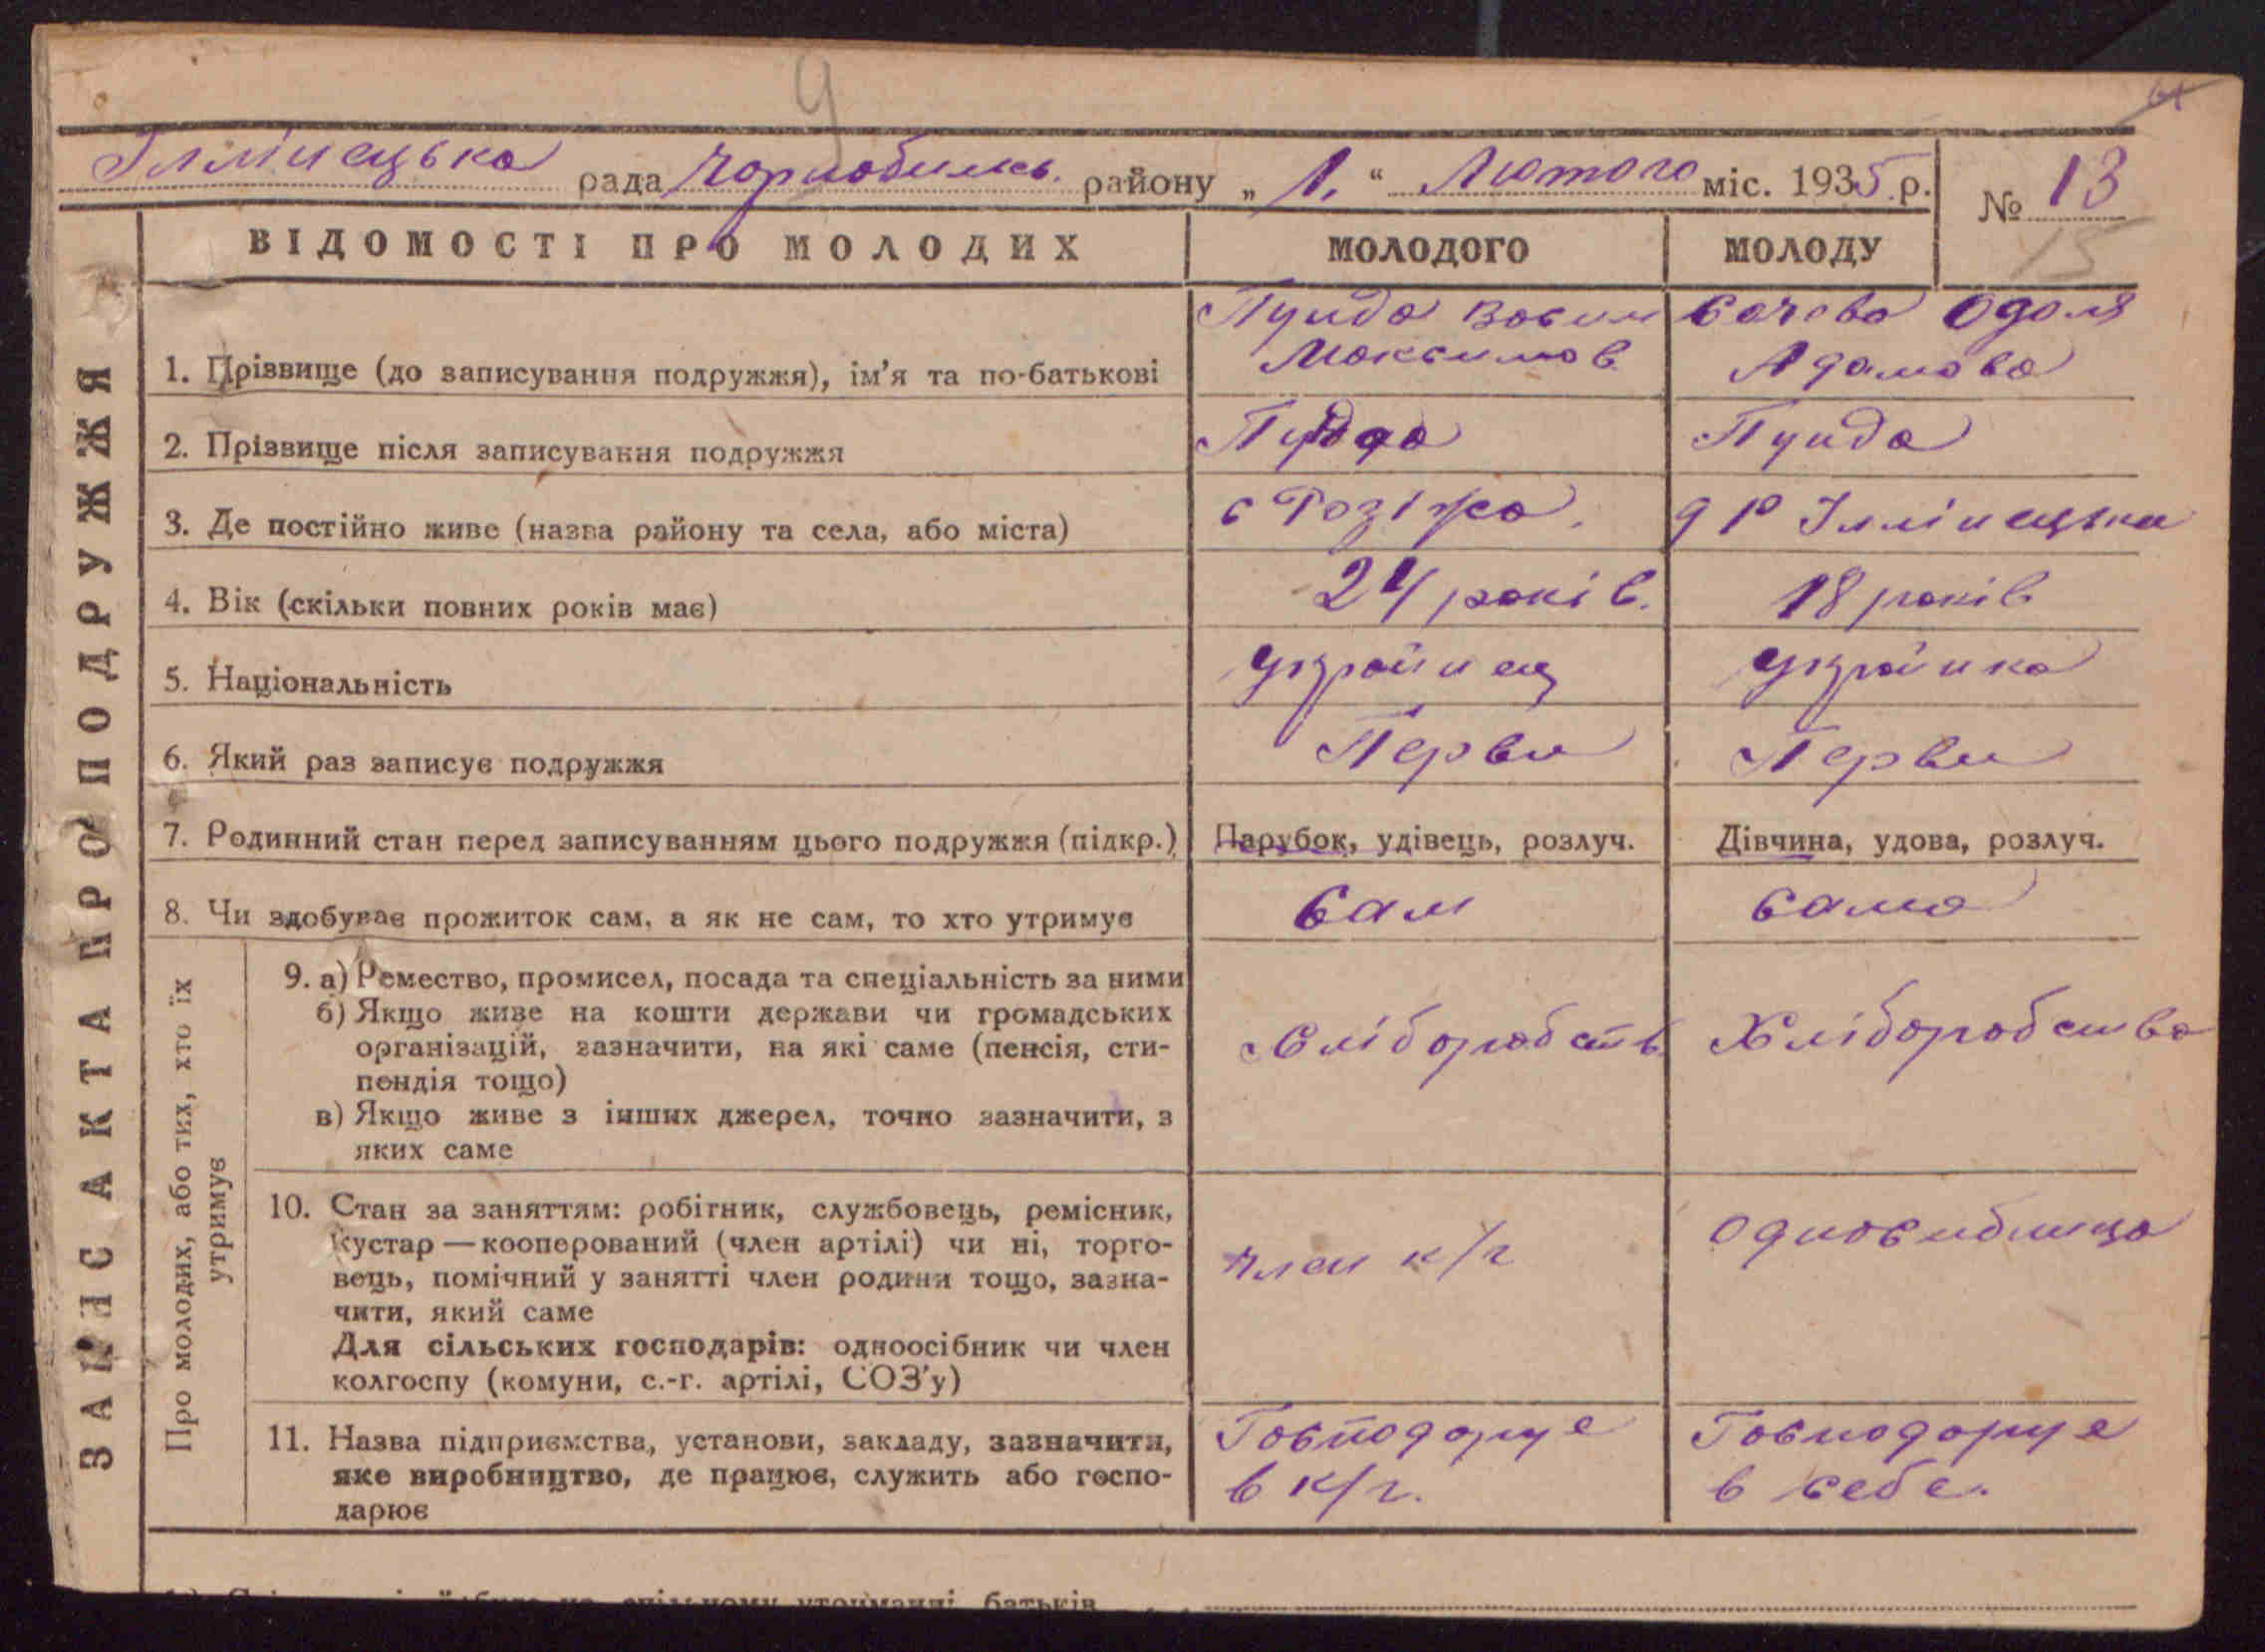 Іллінецька рада Чорнобильс. району „ 1. “ Лютого міс. 1935 р. № 13
15
ЗАПИС АКТА ПРО ПОДРУЖЖЯ
ВІДОМОСТІ ПРО МОЛОДИХ МОЛОДОГО МОЛОДУ
1. Прізвище (до записування подружжя), ім’я та по-батькові
Пунда
Максимов. Адамова
2. Прізвище після записування подружжя Пунда Пунда
3. Де постійно живе (назва району та села, або міста) с Розіжа. Іллінецька
4. Вік (скільки повних років має) 24 років. 18 років
5. Національність Українец Українка
6. Який раз записує подружжя Перви Перви
7. Родинний стан перед записуванням цього подружжя (підкр.) Парубок, удівець, розлуч. Дівчина, удова, розлуч.
8. Чи здобуває прожиток сам, а як не сам, то хто утримує Сам Сама
Про молодих, або тих, хто їх
утримує
9. а) Ремество, промисел, посада та спеціальність за ними
б) Якщо живе на кошти держави чи громадських
організацій, зазначити, на які саме (пенсія, сти-
пендія тощо)
в) Якщо живе з інших джерел, точно зазначити, з
яких саме
Хліборобств Хліборобства
10. Стан за заняттям: робітник, службовець, ремісник,
кустар — кооперований (член артілі) чи ні, торго-
вець, помічний у занятті член родини тощо, зазна-
чити, який саме
Для сільських господарів: одноосібник чи член
колгоспу (комуни, с.-г. артілі, СОЗ’у)
член к/г Односибница
11. Назва підприємства, установи, закладу, зазначити,
яке виробництво, де працює, служить або госпо-
дарює
Господарує Господарує
в к/г. в себе.
спільному утриманні батьків